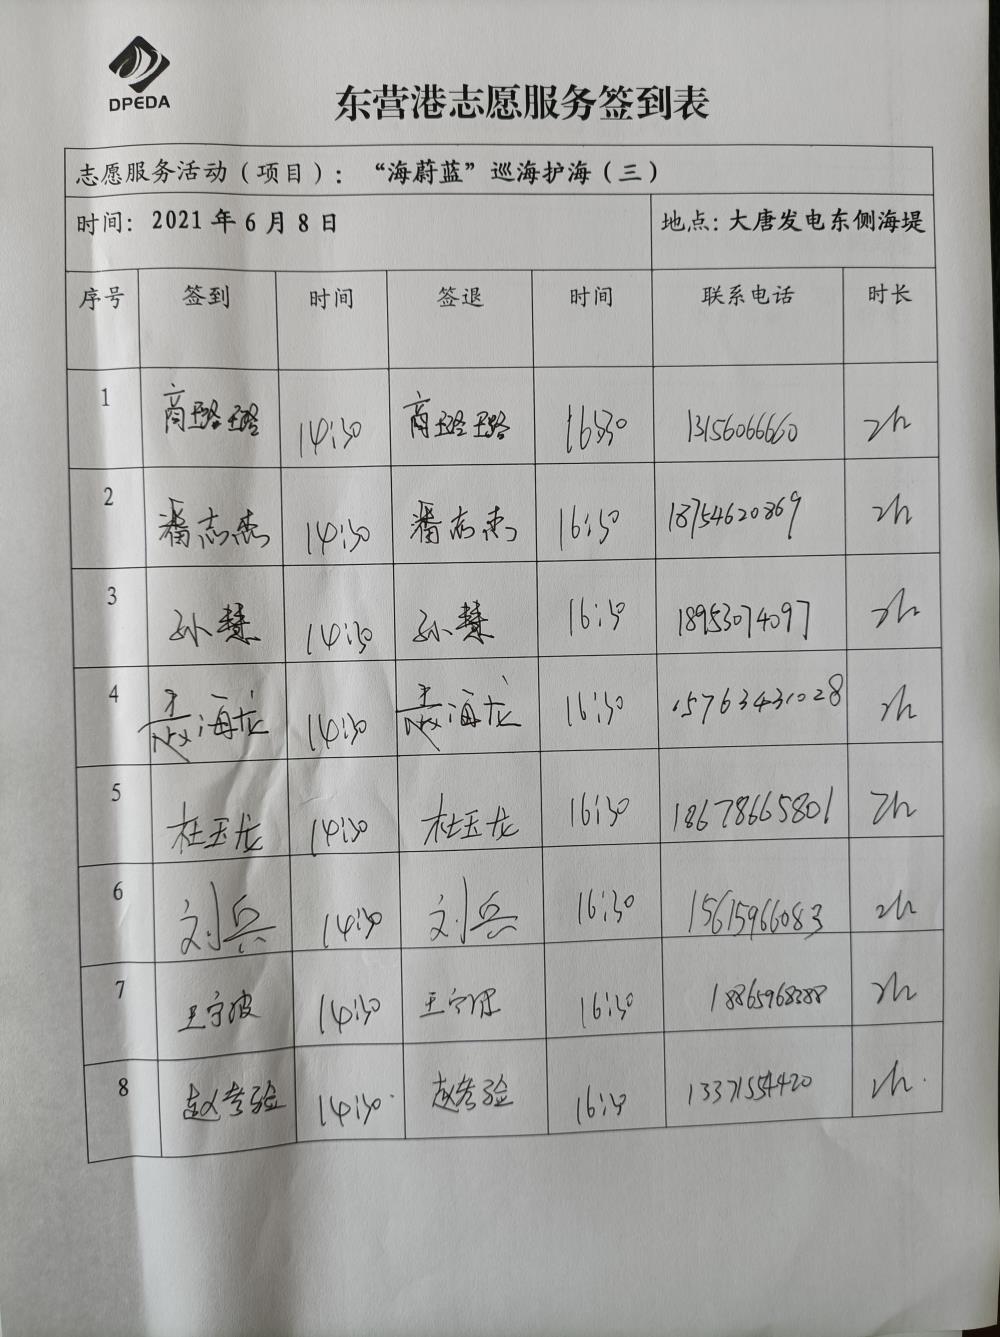 DPEDA
东营港志愿服务签到表
志愿服务活动（项目）：“海蔚蓝”巡海护海（三）
时间：2021年6月8日 地点：大唐发电东侧海堤
序号 签到 时间 签退 时间 联系电话 时长
1 商璐璐 14:30 商璐璐 16:30 13156066660 2h
2 潘志杰 14:30 潘志杰 16:30 18754620869 2h
3 孙慧 14:30 孙慧 16:30 18953074097 2h
4 海龙 14:30 海龙 16:30 15763431028 2h
5 杜玉龙 14:30 杜玉龙 16:30 18678665801 2h
6 刘兵 14:30 刘兵 16:30 15615966083 2h
7 王宁波 14:30 王宁波 16:30 18865968388 2h
8 赵考验 14:30 赵考验 16:30 13371554420 2h